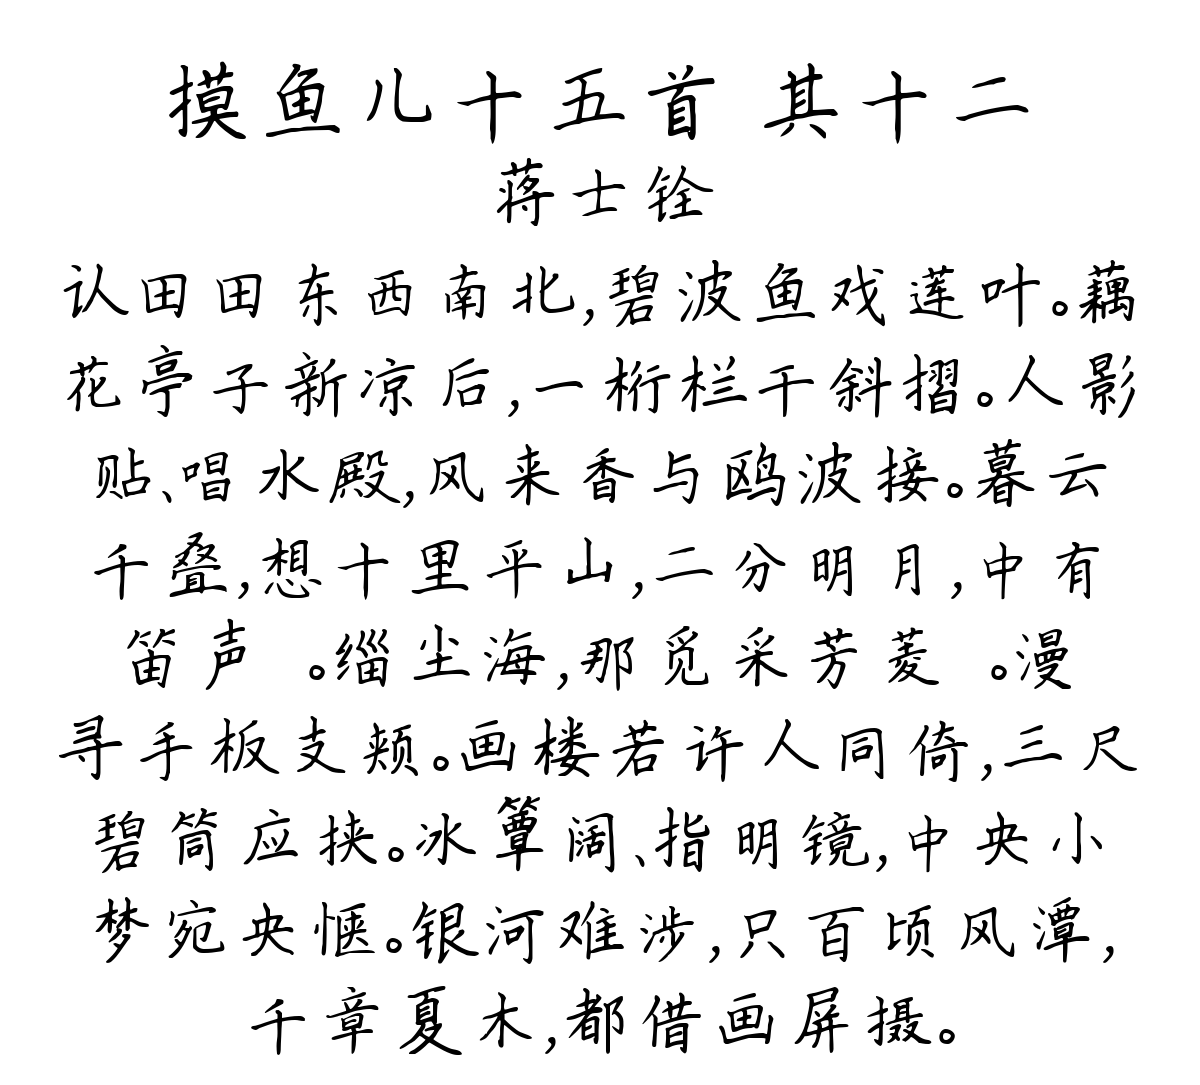 摸鱼儿十五首 其十二
蒋士铨
认田田东西南北,碧波鱼戏莲叶。藕
花亭子新凉后,一桁栏干斜摺。人影
贴、唱水殿,风来香与鸥波接。暮云
千叠,想十里平山,二分明月,中有
笛声 。缁尘海,那觅采芳菱 。漫
寻手板支颊。画楼若许人同倚,三尺
碧筒应挟。冰簟阔、指明镜,中央小
梦宛央惬。银河难涉,只百顷风潭,
千章夏木,都借画屏摄。